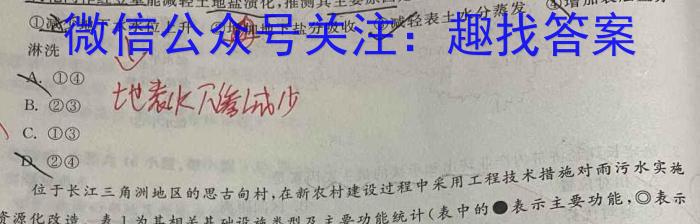 内作红豆草能减轻土地盐渍化,推测其主要原因是
①减 地下水位上升 ②增加地下盐分吸收 ③减轻表土水分蒸发 ④增加表层
微信公众号关注：趣找答案
淋洗
A. ①④
B. ②③
C. ①③
D. ②④
地表水下渗减少
位于长江三角洲地区的思古甸村,在新农村建设过程中采用工程技术措施对雨污水实施
资源化改造。表1为其相关基础设施类型及主要功能统计(表中的●表示主要功能,◎表示